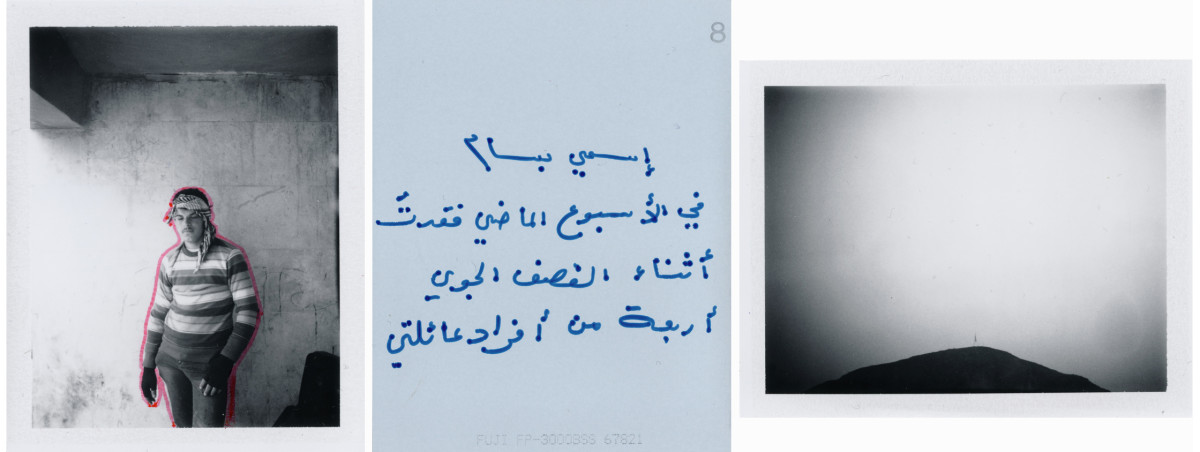 8
إسمي بسام
في الأسبوع الماضي فقدتُ
أثناء القصف الجوي
أربعة من أفراد عائلتي
FUJI FP-3000B